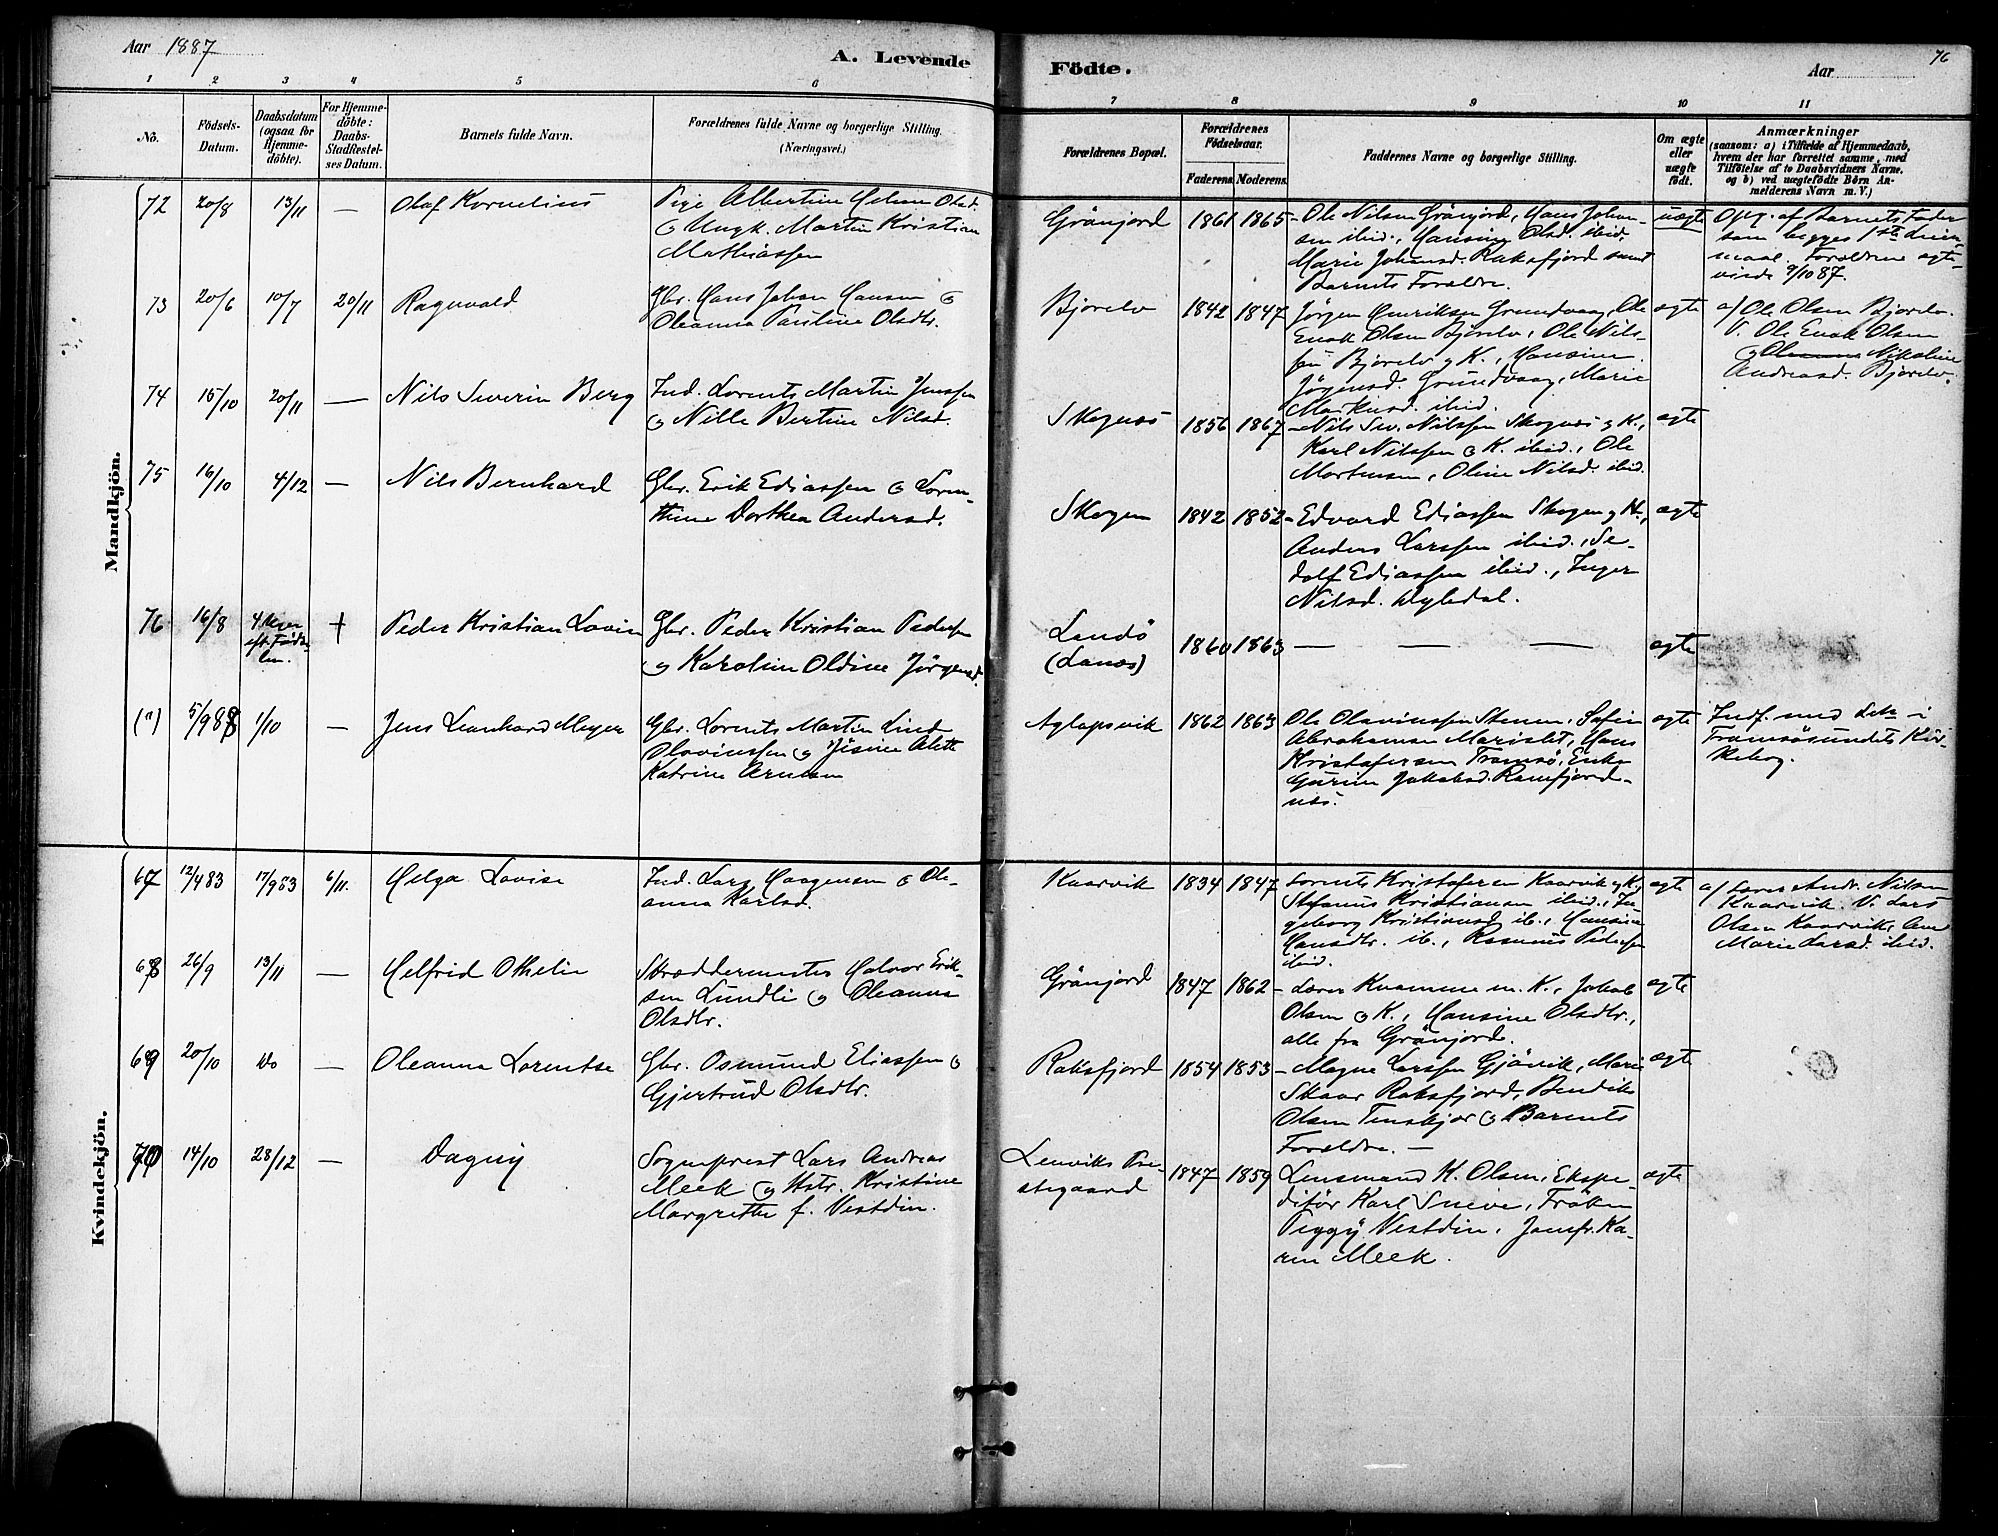 Aar 1887
A. Levende
Födte.
Aar
76
1 2 3 4 5 6 7 8 9 10 11
No.
Födsels-
Datum.
Daabsdatum
(ogsaa for
Hjemme-
döbte).
For Hjemme-
döbte:
Daabs-
Stadfæstel-
ses Datum.
Barnets fulde Navn.
Forældrenes fulde Navne og borgerlige Stilling.
(Næringsvei.)
Forældrenes Bopæl.
Forældrenes
Födselsaar.
Faderens.
Moderens.
Faddernes Navne og borgerlige Stilling.
Om ægte
eller
uægte
födt.
Anmærkninger
(saasom: a) i Tilfælde af Hjemmedaab,
hvem der har forrettet samme, med
Tilföielse af to Daabsvidners Navne.
og b) ved uægtefödte Börn An-
melderens Navn m. V.)
Mandkjön.
72 20/8 13/11 — Olaf Kornelius
Pige Albertine Helene Olsd.
og Ungk. Martin Kristian
Mathiassen
Grånjord 1861 1865
Ole Nilsen Grånjord, Hans Johan-
sen ibid., Hansine Olsd. ibid.
Marie Johansd. Raksfjord samt
Barnets Foraldre.
uægte
Opg. af Barnets Fader
som begges 1ste Leier-
maal. Foraldrene ægte-
viede 9/10 87.
73 20/6 10/7 20/11 Ragnvald
Gbr. Hans Johan Hansen og
Oleanna Pauline Olsdtr.
Bjorelv 1842 1847
Jørgen Henriksen Grundvaag, Ole
Enok Olsen Bjorelv, Ole Nils-
sen Bjorelv og K., Hansine
Jørgensd. Grundvaag, Marie
Markusd. ibid.
ægte
a/ Ole Olsen Bjorelv.
V. Ole Enok Olsen
og Nikoline
Andreasd. Bjorelv.
74 15/10 20/11 — Nils Severin Berg
Ind. Lorents Martin Jenssen
og Nille Bertine Nilsd.
Skognæs 1856 1867
Nils Sev. Nilssen Skognæs og K.,
Karl Nilssen og K. ibid., Ole
Mortensen, Oline Nilsd. ibid.
ægte
75 16/10 4/12 — Nils Bernhard
Gbr. Erik Ediassen og Loren-
thine Dorthea Andersd.
Skogen 1842 1852
Edvard Ediassen Skogen og K.,
Anders Larssen ibid., Se-
dolf Ediassen ibid., Inger
Nilsd. Nybdal.
ægte
76 16/8 4 Uger
eft. Føds-
len. + Peder Kristian Lavin
Gbr. Peder Kristian Pedersen
og Karoline Oldine Jørgensd.
Landö
(Lanæs) 1860 1863 — — — ægte
(") 5/9 88 1/10 — Jens Leonhard Meyer
Gbr. Lorents Martin Lind
Olavinssen og Jisine Alette
Katrine Arnesen
Aglapsvik 1862 1863
Ole Olavinssen Stenen, Sofie
Abrahamsen Marislet, Hans
Kristofersen Tromsö, Enke
Gurine Jakobsd. Ramfjord-
næs.
ægte
Indf. med Dato i
Tromsösundets Kir-
kebog.
Kvindekjön.
67 12/4 83 17/9 83 6/11. Helga Lovise
Ind. Lars Haagensen og Ole-
anna Karlsd.
Kaarvik 1834 1847
Lorents Kristofersen Kaarvik og K.,
Stefanus Kristiansen ibid., In-
geborg Kristiansd. ib., Hansine
Hansdtr. ib., Rasmus Pedersen
ibid.
ægte
a/ Lærer Andr. Nilsen
Kaarvik. V. Lars
Olsen Kaarvik, Ane
Marie Larsd. ibid.
68 26/9 13/11 — Helfrid Othelie
Skræddermester Halvor Erik-
sen Lundli og Oleanna
Olsdtr.
Grånjord 1847 1862
Lærer Kvamme m. K., Jakob
Olsen og K., Hansine Olsdtr.,
alle fra Grånjord.
ægte
69 20/10 do — Oleanna Lorentse
Gbr. Osmund Eliassen og
Gjertrud Olsdtr.
Raksfjord 1854 1853
Mogne Larssen Gjövik, Marie
Skaar Raksfjord, Bendik
Olsen Tenskjær og Barnets
Foraldre. —
ægte
70 14/10 28/12 — Dagny
Sogneprest Lars Andreas
Meek og Hstr. Kristine
Margrethe f. Vestdin.
Lenviks Præ-
stegaard 1847 1859
Lensmand K. Olsen, Ekspe-
ditör Karl Sneve, Fröken
Peggy Vestdin, Jomfr. Ka-
ren Meek.
ægte